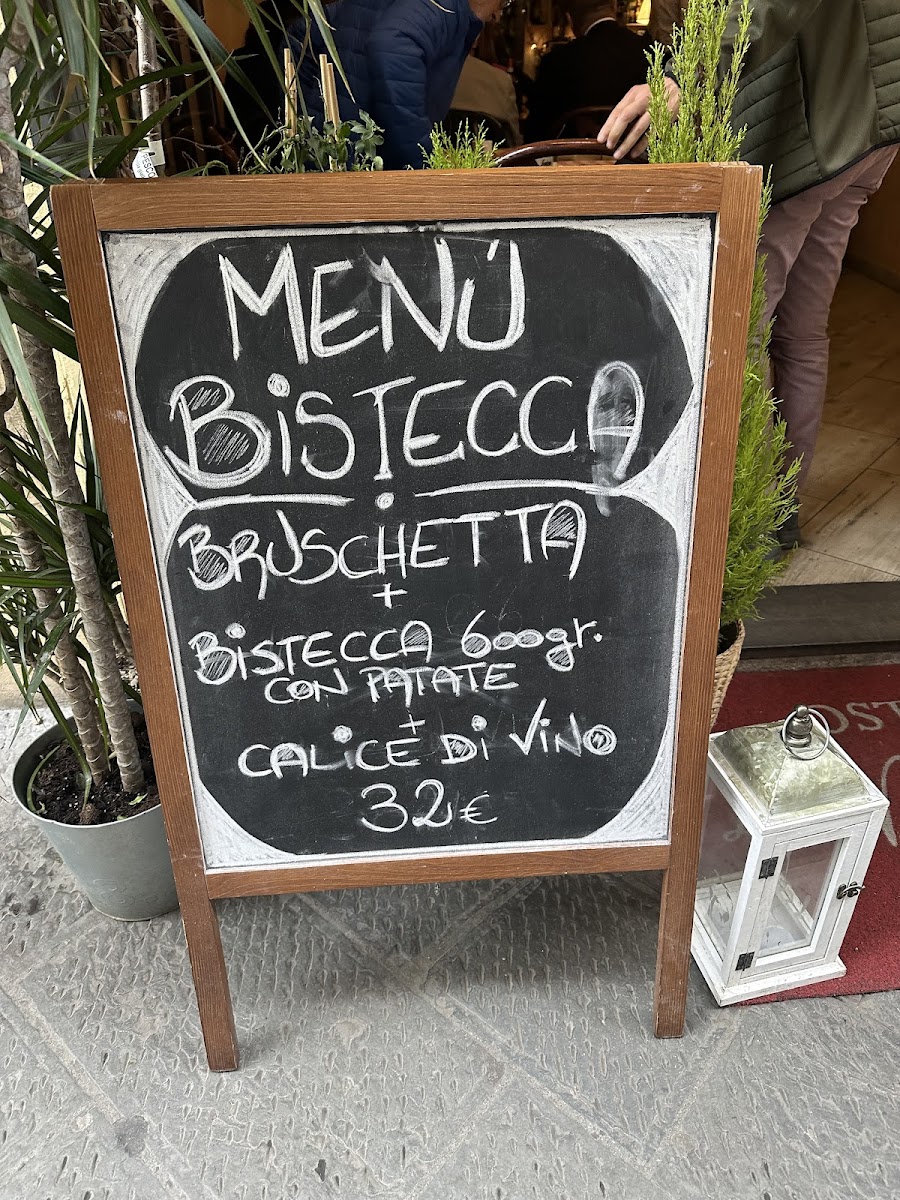 MENÙ
BISTECCA
BRUSCHETTA
+
BISTECCA 600gr.
CON PATATE
+
CALICE DI VINO
32€